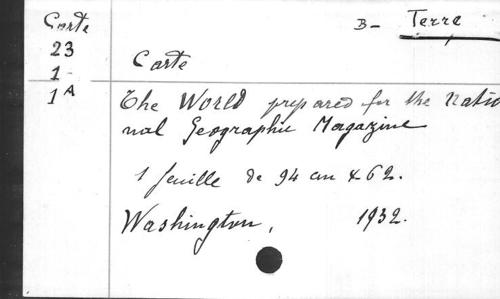 Carte
23
1
1A
B- Terre
Carte
The World prepared for the Natio
nal Geographic Magazine
1 feuille de 94 cm x 62.
Washington, 1932.